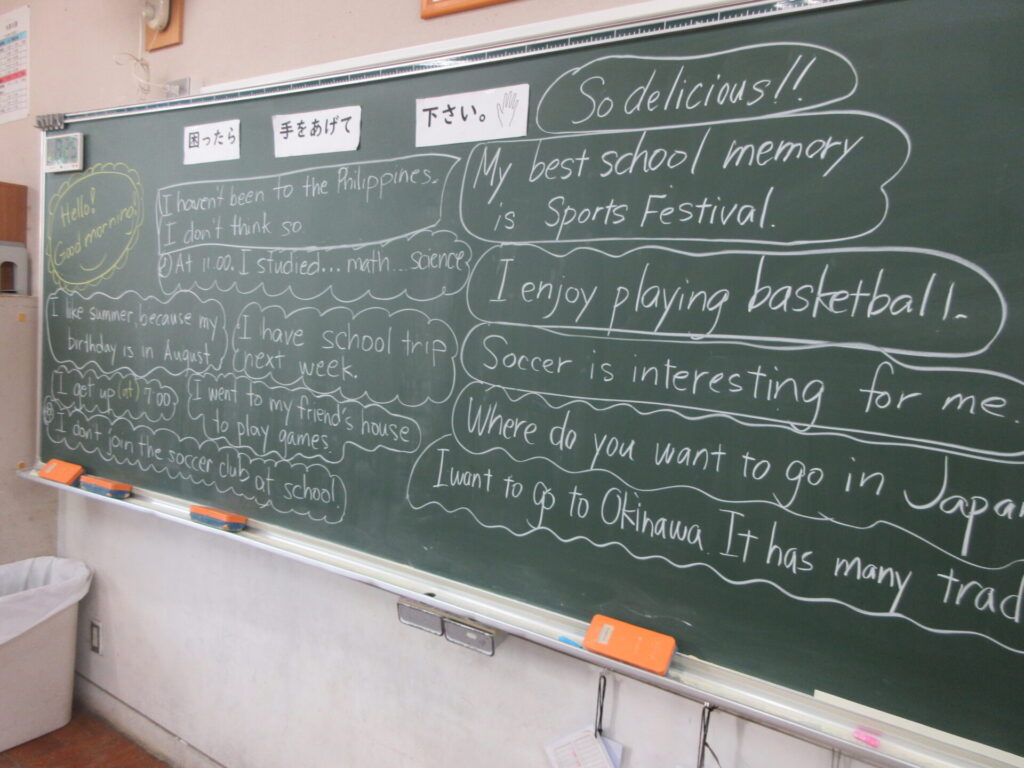 困ったら 手をあげて 下さい。
Hello!
Good morning!
I haven't been to the Philippines.
I don't think so.
At 11:00. I studied... math... science
I like summer, because my
birthday is in August.
I have school trip
next week.
I get up (at) 7:00
I went to my friend's house
to play games.
I don't join the soccer club at school.
So delicious!!
My best school memory
is Sports Festival.
I enjoy playing basketball.
Soccer is interesting for me.
Where do you want to go in Japan
I want to go to Okinawa. It has many trad